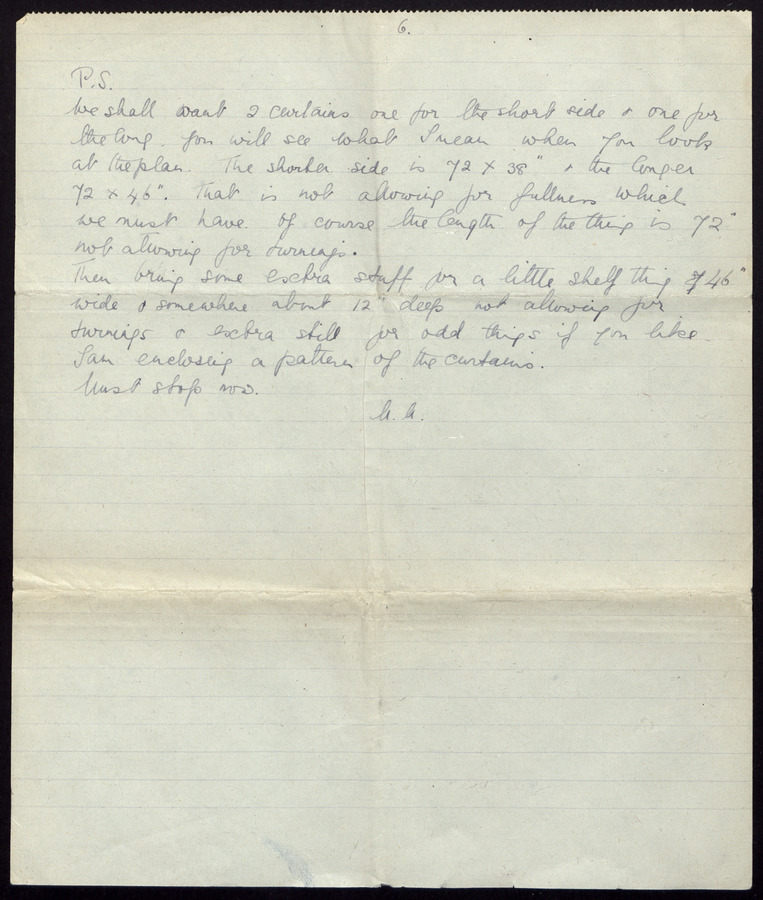 6.
P.S.
We shall want 2 curtains one for the short side & one for
the long. You will see what I mean when you look
at the plan. The shorter side is 72 x 38" & the longer
72 x 46". That is not allowing for fullness which
we must have. Of course the length of the thing is 72"
not allowing for turnings.
Then bring some extra stuff for a little shelf thing 46"
wide & somewhere about 12" deep not allowing for
turnings & extra still for odd things if you like.
I am enclosing a pattern of the curtains.
Must stop now.